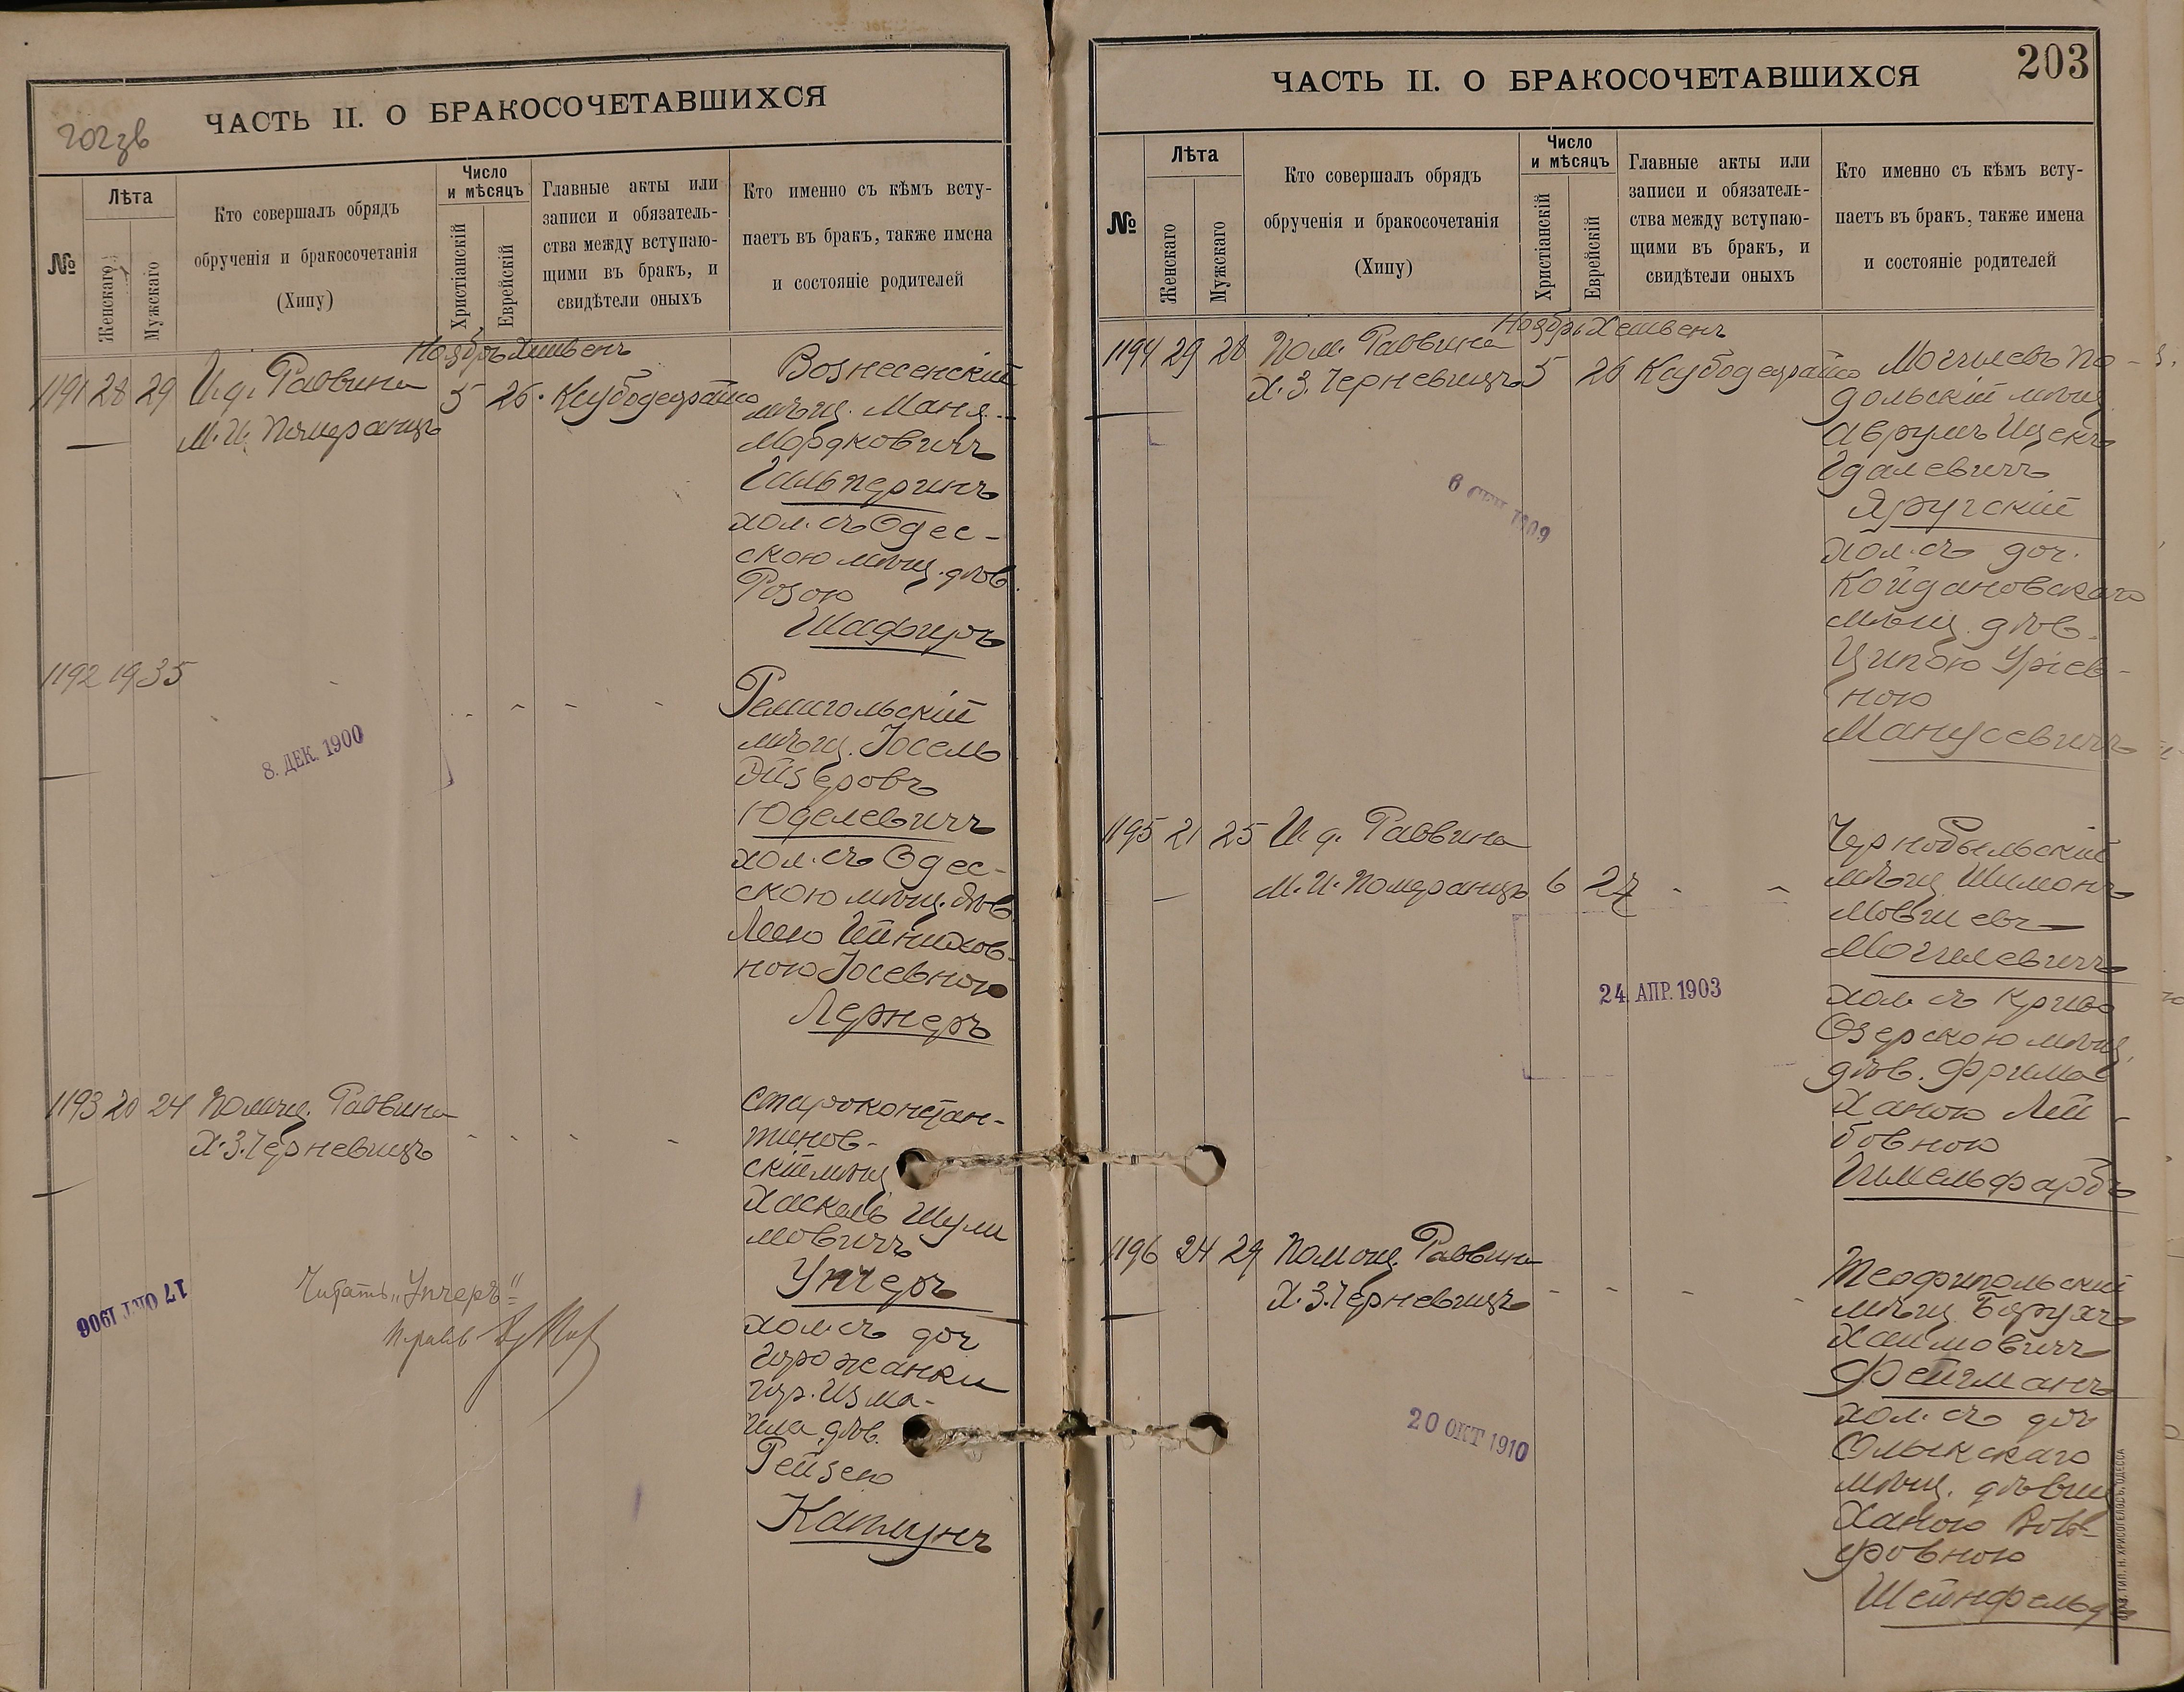 202зв
ЧАСТЬ II. О БРАКОСОЧЕТАВШИХСЯ
№
Лѣта
Женскаго
Мужскаго
Кто совершалъ обрядъ
обрученія и бракосочетанія
(Хипу)
Число
и мѣсяцъ
Христіанскій
Еврейскій
Главные акты или
записи и обязатель-
ства между вступаю-
щими въ бракъ, и
свидѣтели оныхъ
Кто именно съ кѣмъ всту-
паетъ въ бракъ, также имена
и состояніе родителей
Ноябрь Хешвенъ
1191 28 29 И. д. Раввина 5 26.
М. И. Померанцъ
Вознесенскій
мѣщ. Маня
Мордковичъ
Гальперинъ
хол. съ Одес-
скою мѣщ. дѣв.
Розою
Шафиръ
1192 19 35
8. ДЕК. 1900
Ремигольскій
мѣщ. Іосель
Эйзеровъ
Юделевичъ
хол. съ Одес-
скою мѣщ. дѣв.
Лею
ною Іосевною
Лернеръ
1193 20 24 Помощ. Раввина
Х. З. Черневицъ
17 ОКТ 1906
Читать „Унгеръ"
Староконстан-
тинов-
скій мѣщ
Хаскель Шули
мовичъ
Унгеръ
хол. съ доч
горожанки
гор. Изма-
ила дѣв.
Рейзею
Катунъ
203
ЧАСТЬ II. О БРАКОСОЧЕТАВШИХСЯ
№
Лѣта
Женскаго
Мужскаго
Кто совершалъ обрядъ
обрученія и бракосочетанія
(Хипу)
Число
и мѣсяцъ
Христіанскій
Еврейскій
Главные акты или
записи и обязатель-
ства между вступаю-
щими въ бракъ, и
свидѣтели оныхъ
Кто именно съ кѣмъ всту-
паетъ въ бракъ, также имена
и состояніе родителей
Ноябрь Хешвенъ
1194 29 28 Пом. Раввина
Х. З. Черневицъ 5 26
6 СЕН 1909
Могилевъ По-
дольскій мѣщ
Аврумъ Ицекъ
Гдалевичъ
Яругскій
хол. съ доч.
Койдановскаго
мѣщ. дѣв.
Ципою Уріев-
ною
Манусевичъ
1195 21 25 И. д. Раввина
М. И. Померанцъ 6 27
24. АПР. 1903
Чернобыльскій
мѣщ. Шимонъ
Мовшевъ
Могилевичъ
хол. съ Криво
Озерскою мѣщ.
дѣв. Фрима
Ханою Лей-
бовною
Гимельфарбъ
1196 24 29 Помощ. Раввина
Х. З. Черневицъ
20 ОКТ 1910
Теофипольский
мѣщ. Борухъ
Хаимовичъ
Фейгманъ
хол. съ доч
Олыкскаго
мѣщ. дѣвиц
Ханою Воль-
фовною
Шейнфельдъ